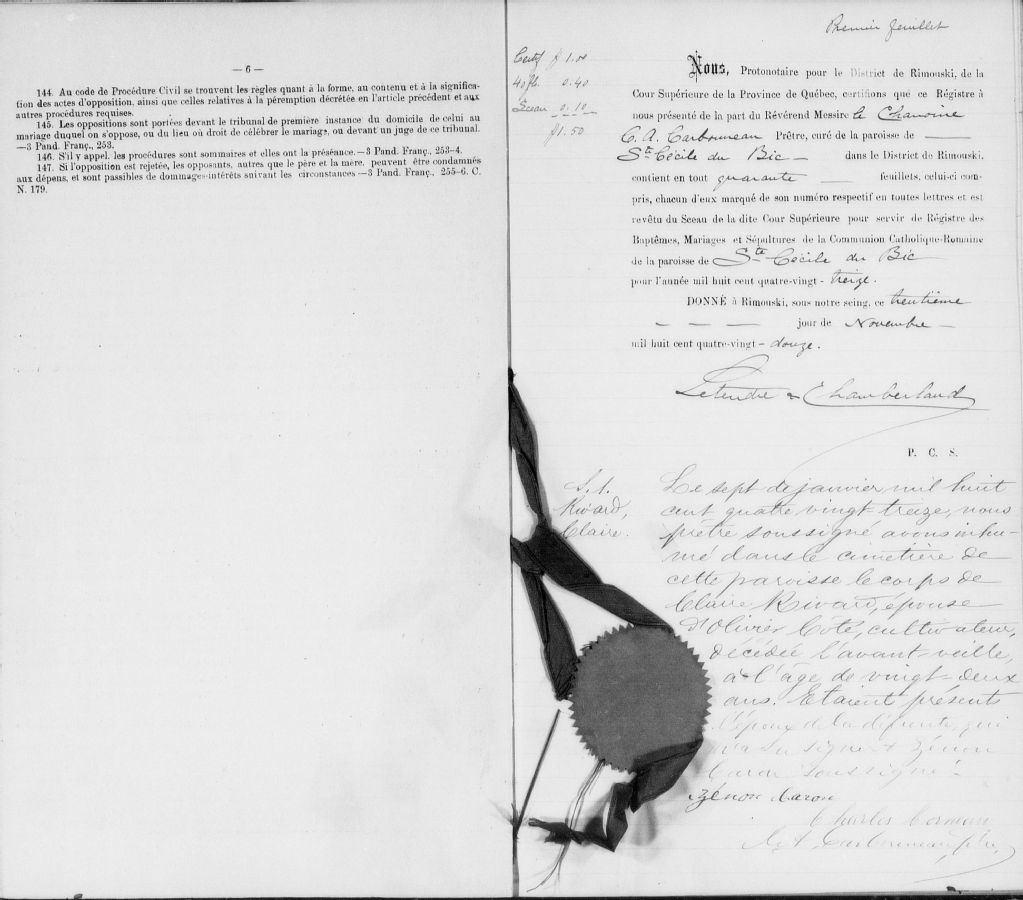 — 6 —
144. Au code de Procédure Civil se trouvent les règles quant à la forme, au contenu et à la significa-
tion des actes d'opposition, ainsi que celles relatives à la péremption décrétée en l'article précédent et aux
autres procédures requises.
145. Les oppositions sont portées devant le tribunal de première instance du domicile de celui au
mariage duquel on s'oppose, ou du lieu où droit de célébrer le mariage, ou devant un juge de ce tribunal.
—3 Pand. Franç., 253.
146. S'il y appel, les procédures sont sommaires et elles ont la préséance.—3 Pand. Franç., 253-4.
147. Si l'opposition est rejetée, les opposants, autres que le père et la mère, peuvent être condamnés
aux dépens, et sont passibles de dommages-intérêts suivant les circonstances —3 Pand. Franç., 255-6. C.
N. 179.
Premier feuillet
Certif $ 1.00
40 fts. 0.40
Sceau 0.10
$1.50
Nous, Protonotaire pour le District de Rimouski, de la
Cour Supérieure de la Province de Québec, certifions que ce Régistre à
nous présenté de la part du Révérend Messire le Chanoine
C. A. Carbonneau Prêtre, curé de la paroisse de —
Ste Cécile du Bic — dans le District de Rimouski,
contient en tout quarante — feuillets, celui-ci com-
pris, chacun d'eux marqué de son numéro respectif en toutes lettres et est
revêtu du Sceau de la dite Cour Supérieure pour servir de Régistre des
Baptêmes, Mariages et Sépultures de la Communion Catholique-Romaine
de la paroisse de Ste Cécile du Bic
pour l'année mil huit cent quatre-vingt - treize.
DONNÉ à Rimouski, sous notre seing, ce trentième
— — — jour de Novembre —
mil huit cent quatre-vingt - douze.
Letendre & Chamberland
P. C. S.
S. 1.
Rivard,
Claire.
Le sept de janvier mil huit
cent quatre vingt-treize, nous
prêtre soussigné avons inhu-
mé dans le cimetière de
cette paroisse le corps de
Claire Rivard, épouse
d'Olivier Côté, cultivateur,
décédée l'avant-veille,
à l'âge de vingt-deux
ans. Etaient présents
l'époux de la défunte, qui
n'a su signer & Zénon
Caron soussigné.
Zénon Caron
Charles
C. A. Carbonneau, ptre